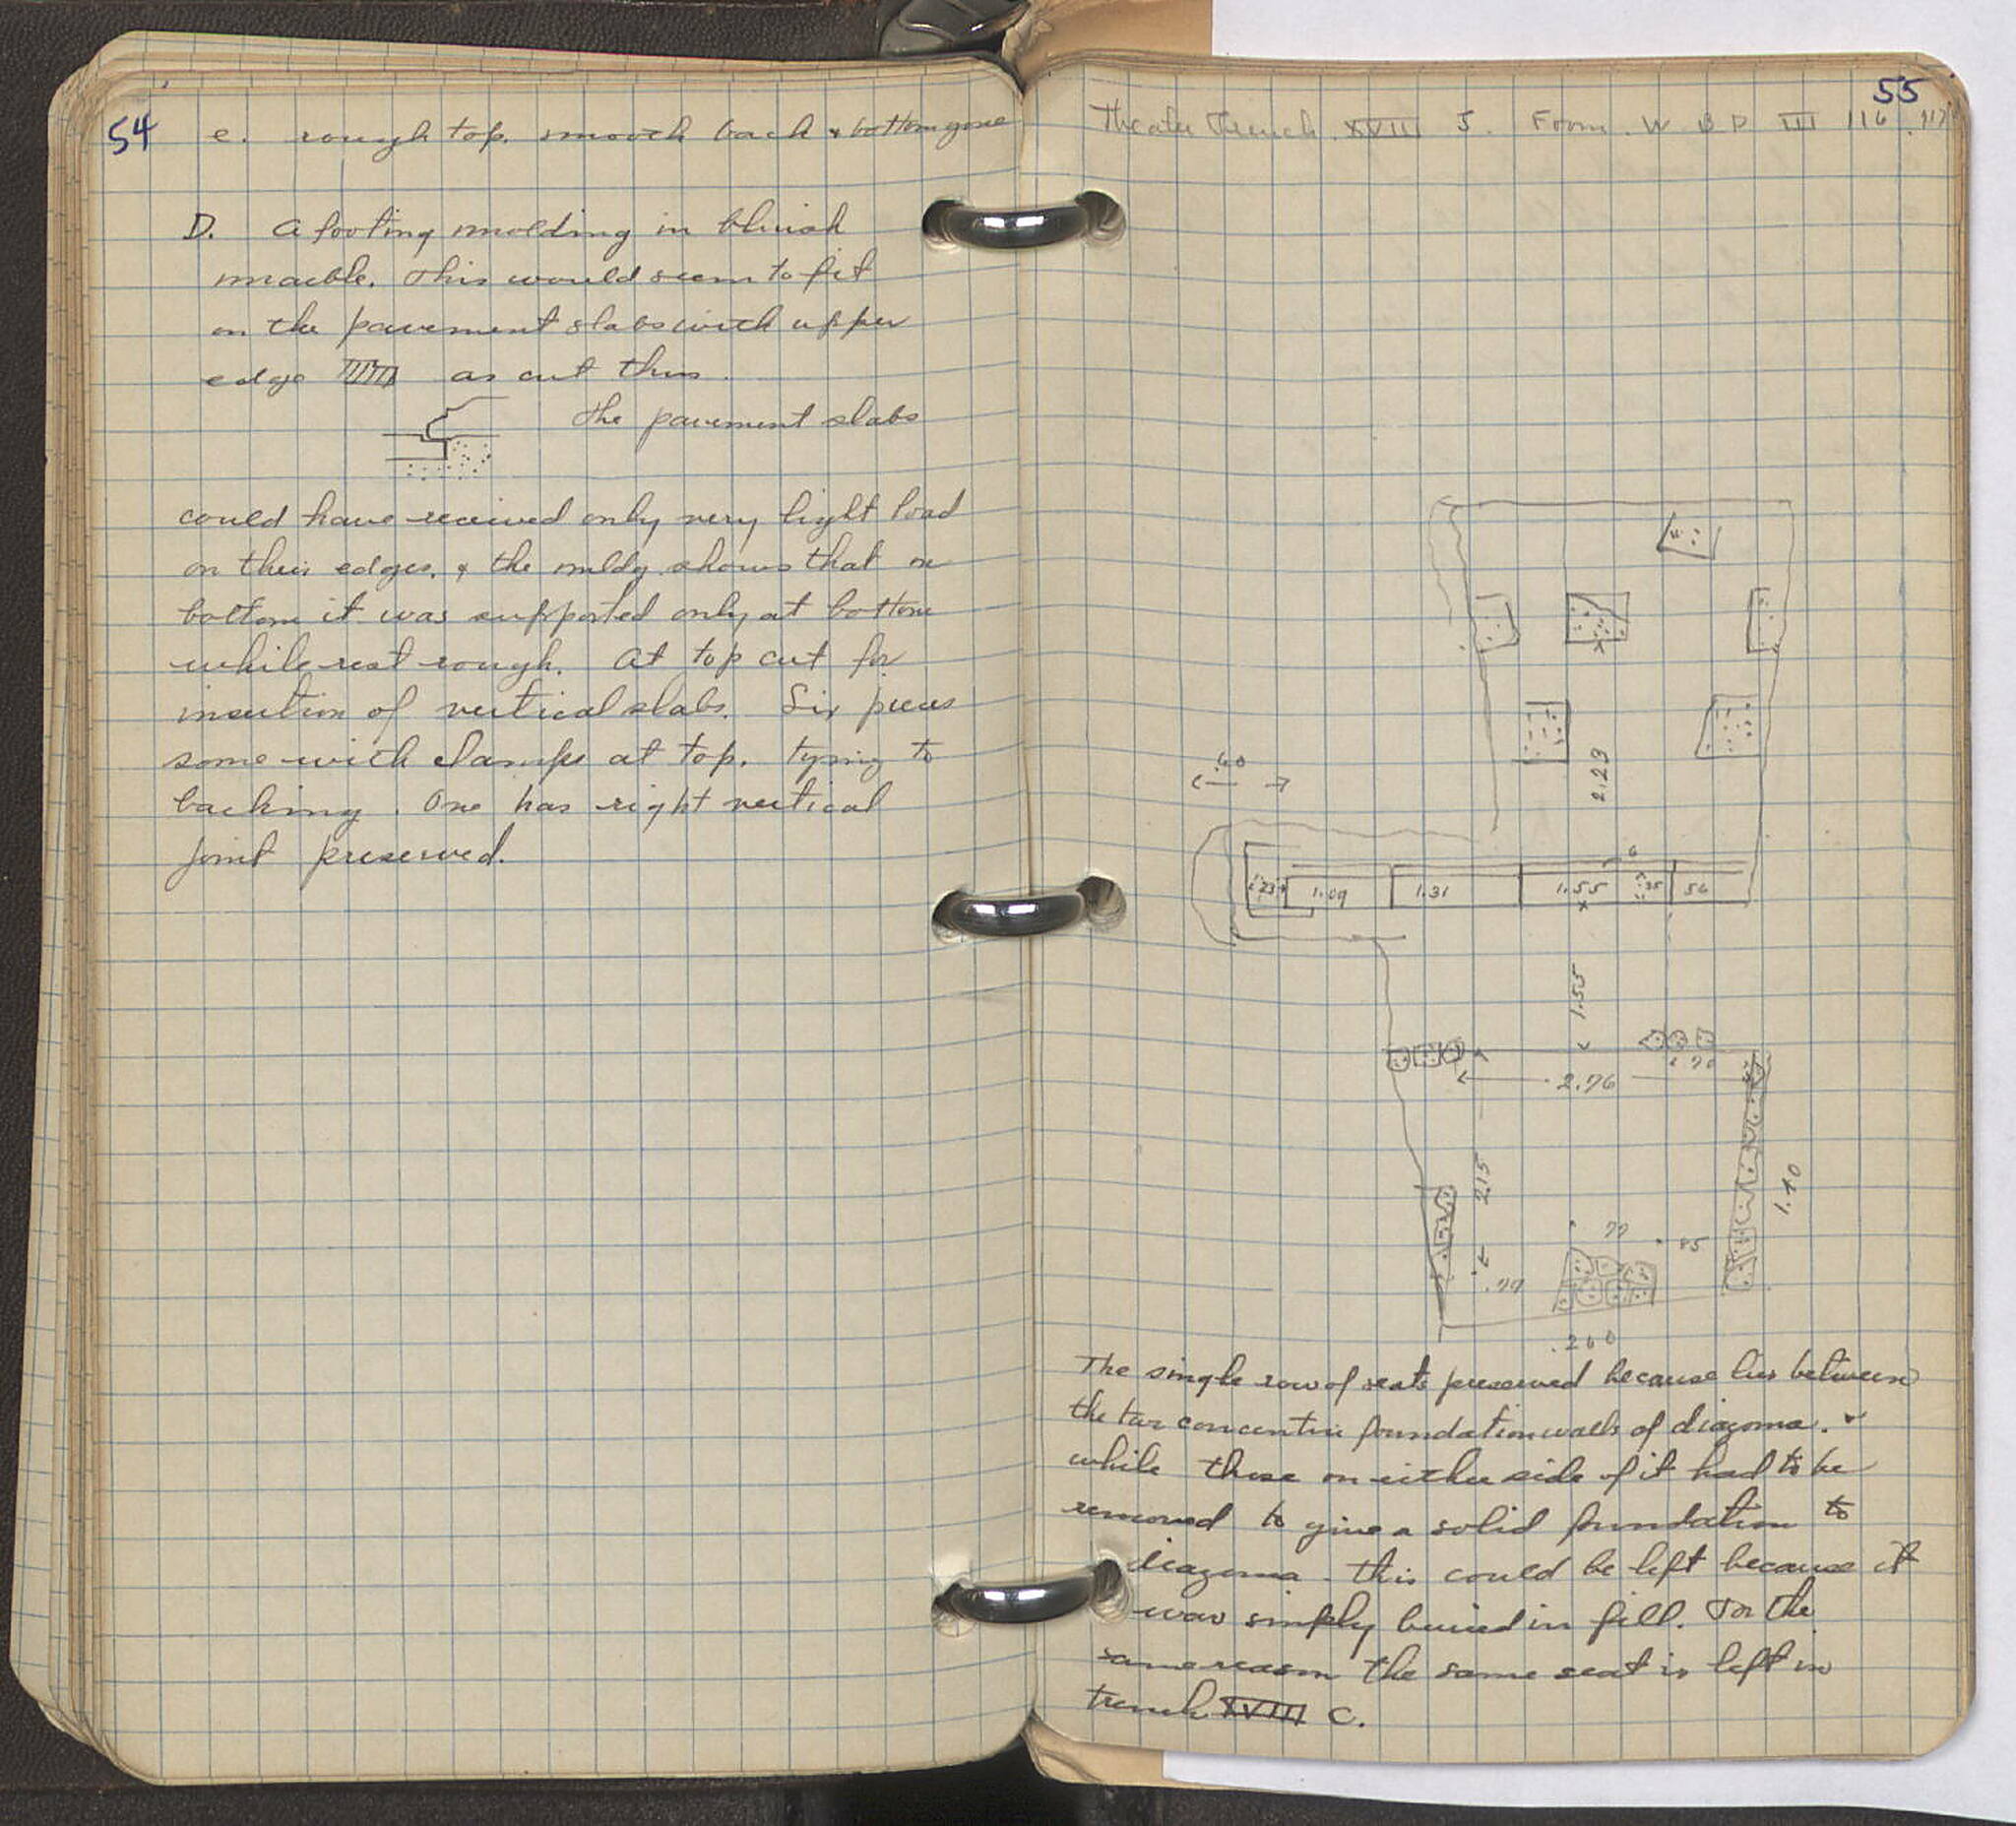 54
e. rough top. smooth back & bottom gone
D. A footing molding in bluish
marble. This would seem to fit
on the pavement slabs with upper
edge as cut thus.
The pavement slabs
could have received only very light load
on their edges. & the mldg. shows that on
bottom it was supported only at bottom
while rest rough. At top cut for
insertion of vertical slabs. Six pieces
some with clamps at top. tying to
backing. One has right vertical
joint preserved.
55
Theater Trench XVIII 5. From W B D III 116. 117
2.23
.60
6
.23
1.09
1.31
1.55
35
56
1.55
.70
2.76
2.15
1.40
77
85
.77
.260
The single row of seats preserved because lies between
the two concentric foundation walls of diazoma. &
while those on either side of it had to be
removed to give a solid foundation to
diazoma. this could be left because it
was simply buried in fill. For the
same reason the same seat is left in
trench XVIII C.